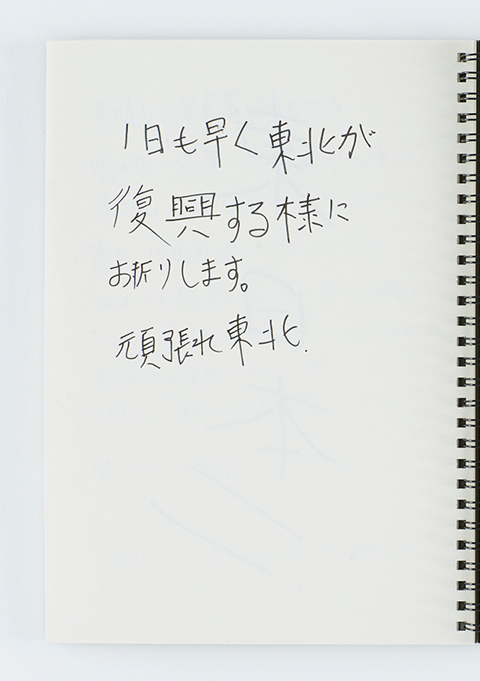 1日も早く東北が
復興する様に
お折りします。
頑張れ東北.